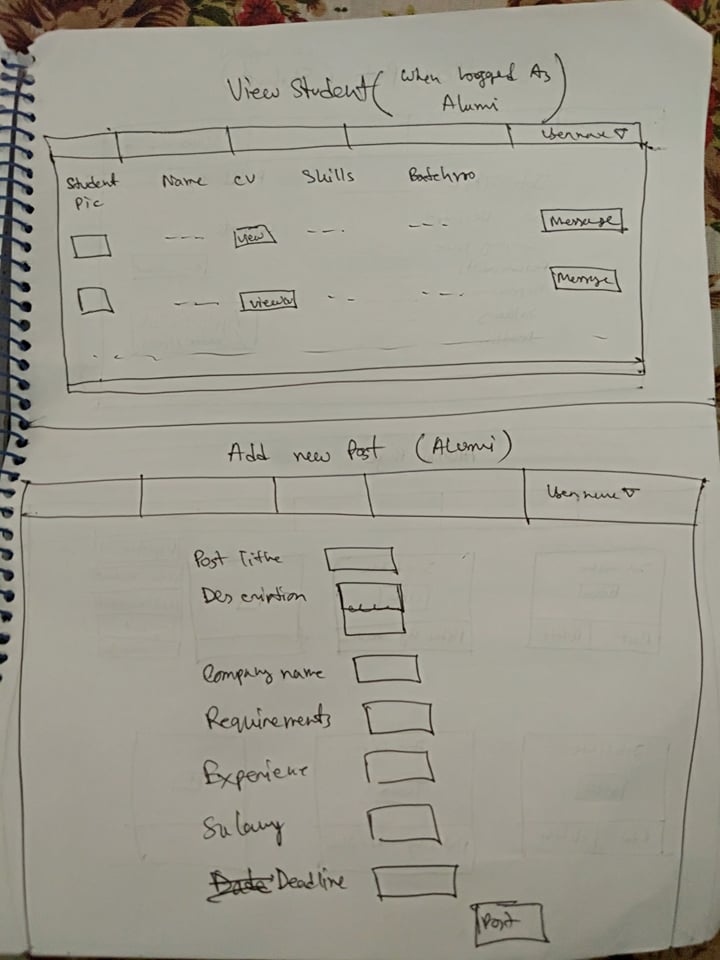 View Student (When Logged As
Alumi)
Username ▽
Student Pic Name CV Skills Batch no
--- view --- --- Message
--- view -- --- Message
Add new Post (Alumi)
Username ▽
Post Title
Description
Company name
Requirements
Experience
Salary
Date Deadline
Post